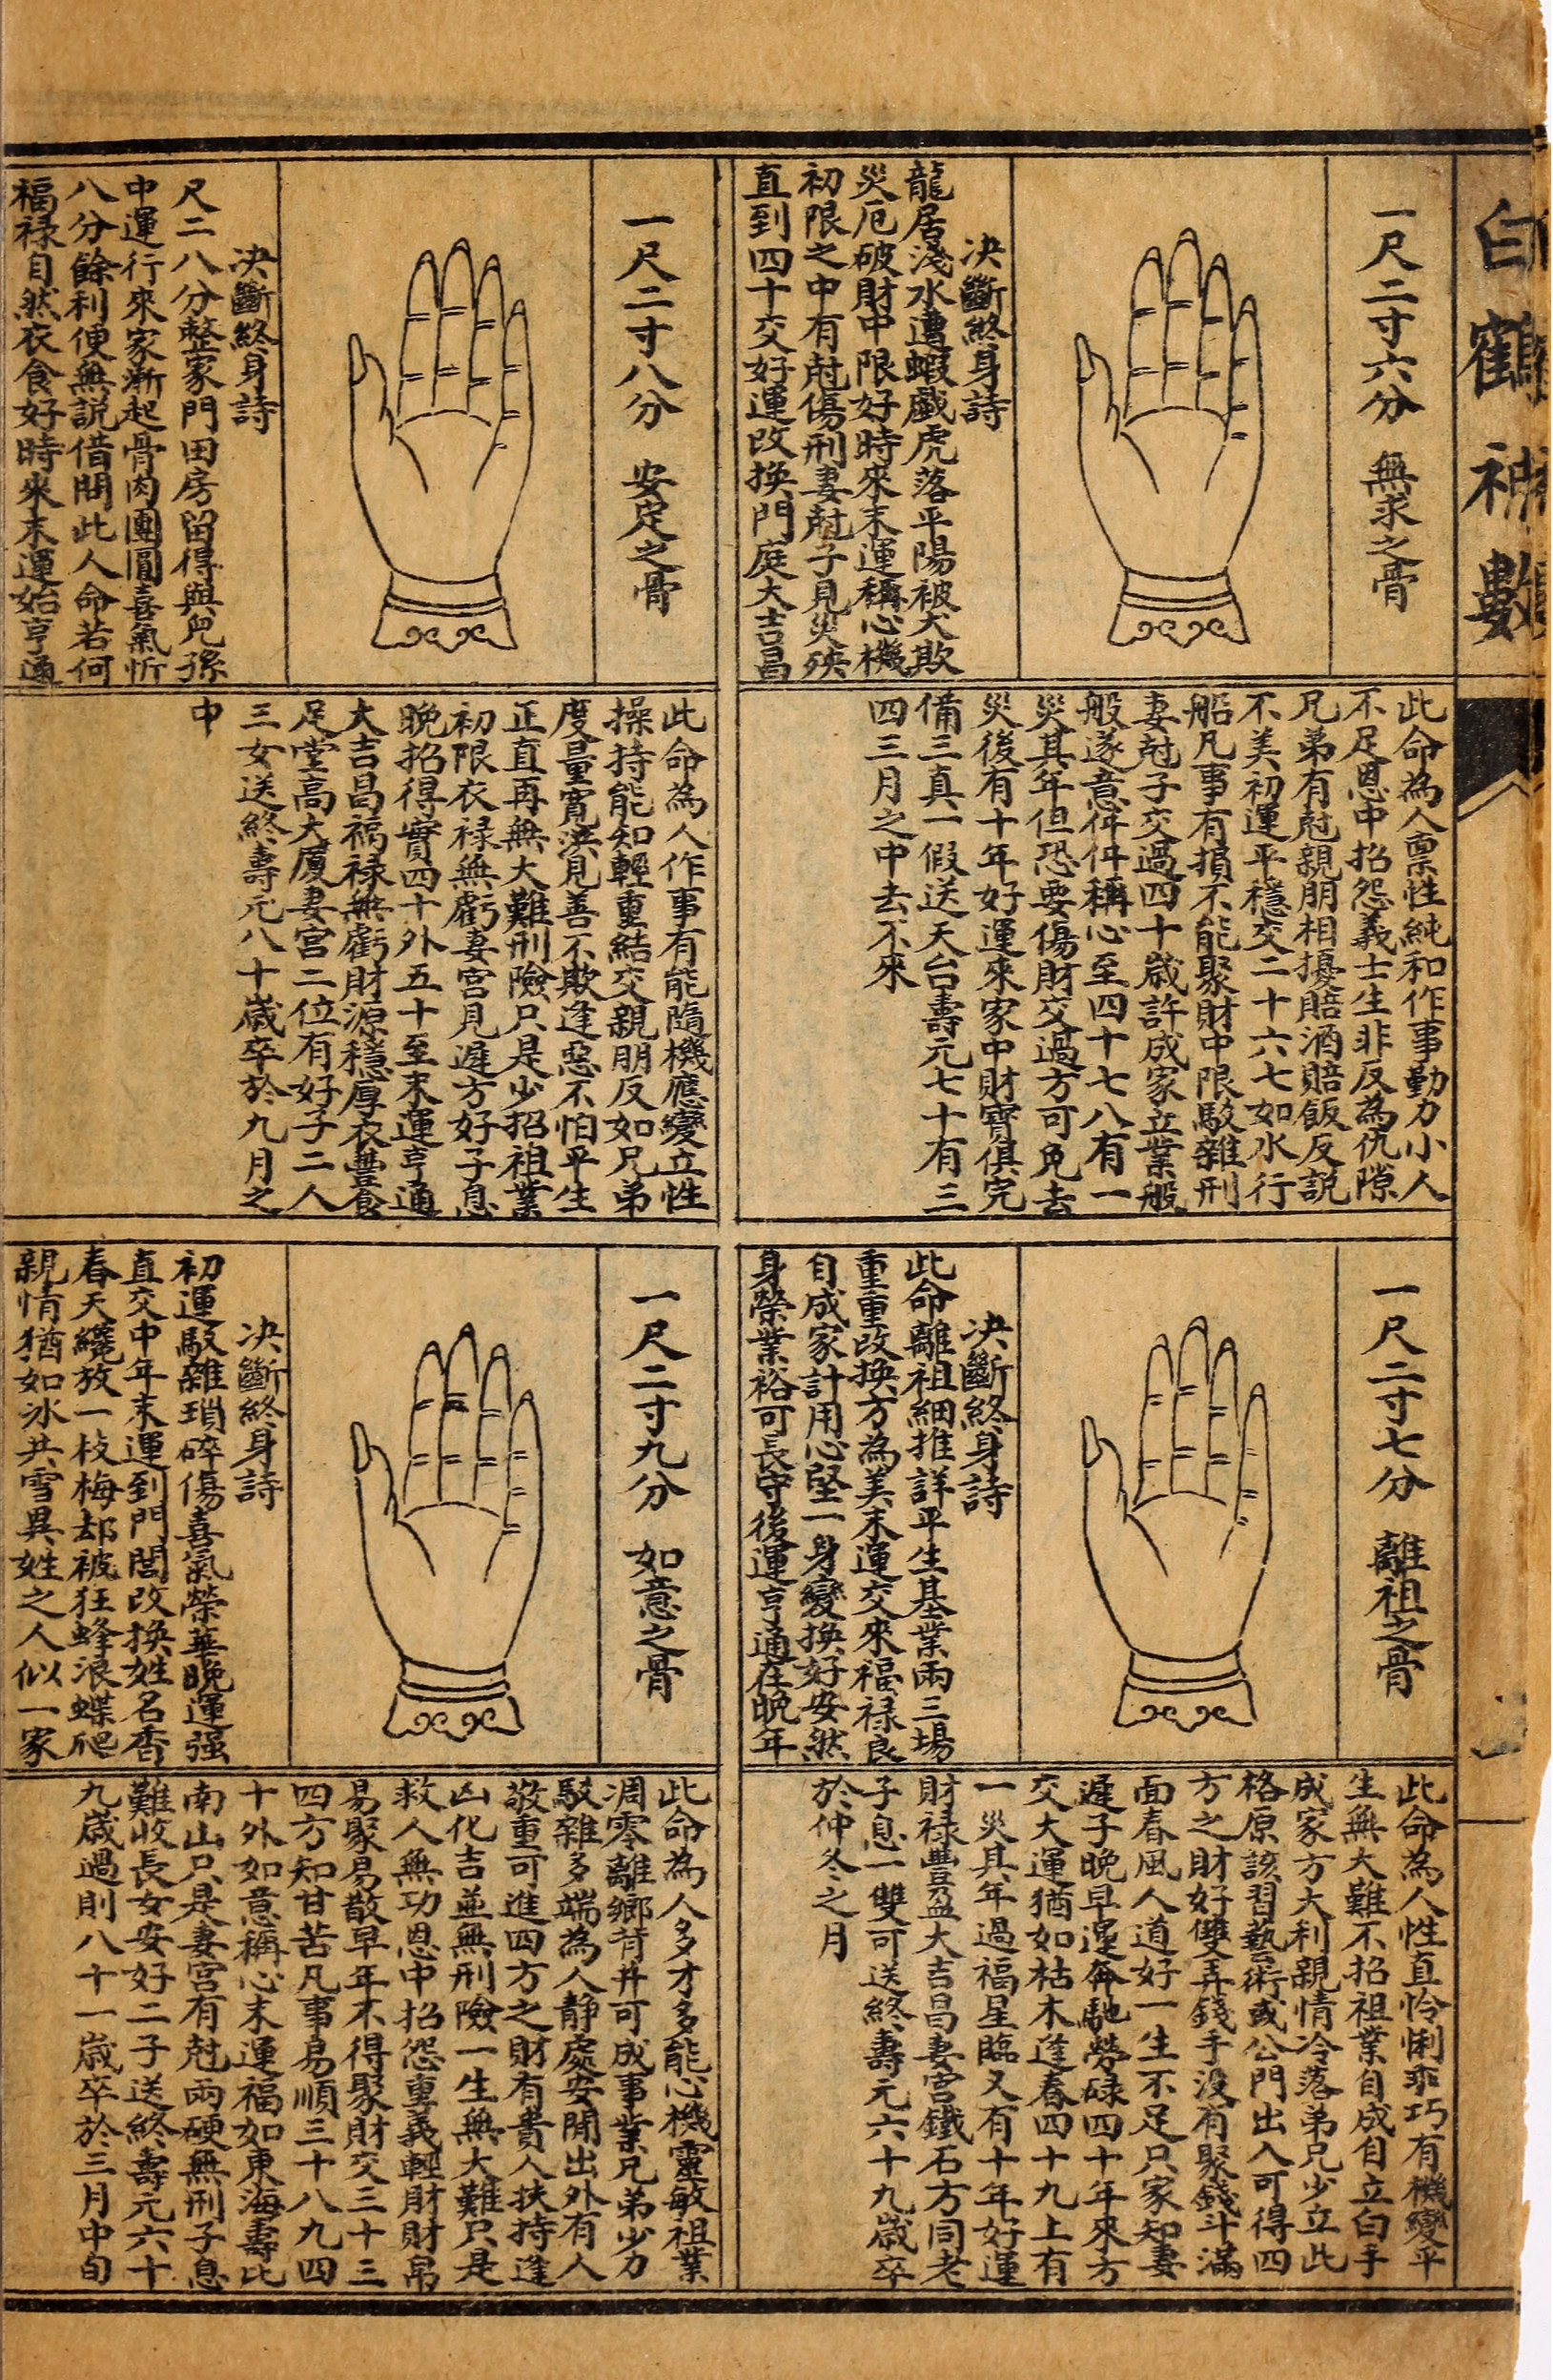 白鶴神數
一尺二寸六分　無求之骨
決斷終身詩
龍居淺水遭蝦戲虎落平陽被犬欺
災厄破財中限好時來末運稱心機
初限之中有尅傷刑妻尅子見災殃
直到四十交好運改換門庭大吉昌
此命為人禀性純和作事勤力小人
不足恩中招怨義士生非反為仇隙
兄弟有尅親朋相擾賠酒賠飯反説
不美初運平穩交二十六七如水行
船凡事有損不能聚財中限駁雜刑
妻尅子交過四十歲許成家立業般
般遂意件件稱心至四十七八有一
災其年但恐要傷財交過方可免去
災後有十年好運來家中財寶俱完
備三真一假送天台壽元七十有三
四三月之中去不來
一尺二寸八分　安定之骨
決斷終身詩
尺二八分整家門田房留得與兒孫
中運行來家漸起骨肉團圓喜氣忻
八分餘利便無説借問此人命若何
福禄自然衣食好時來末運始亨通
此命為人作事有能隨機應變立性
操持能知輕重結交親朋反如兄弟
度量寬洪見善不欺逢惡不怕平生
正直再無大難刑險只是少招祖業
初限衣禄無虧妻宮見遲方好子息
晚招得實四十外五十至末運亨通
大吉昌福禄無虧財源穩厚衣豐食
足堂高大厦妻宮二位有好子二人
三女送終壽元八十歲卒於九月之
中
一尺二寸七分　離祖之骨
決斷終身詩
此命離祖細推詳平生基業兩三場
重重改換方為美末運交來福禄良
自成家計用心堅一身變換好安然
身榮業裕可長守後運亨通在晚年
此命為人性直怜悧乖巧有機變平
生無大難不招祖業自成自立白手
成家方大利親情冷落弟兄少立此
格原該習藝術或公門出入可得四
方之財好雙弄錢手没有聚錢斗滿
面春風人道好一生不足只家知妻
遲子晚早運奔馳勞碌四十年來方
交大運猶如枯木逢春四十九上有
一災其年過福星臨又有十年好運
財禄豐盈大吉昌妻宮鐵石方同老
子息一雙可送終壽元六十九歲卒
於仲冬之月
一尺二寸九分　如意之骨
決斷終身詩
初運駁雜瑣碎傷喜氣榮華晚運强
直交中年末運到門閭改換姓名香
春天纔放一枝梅却被狂蜂浪蝶爬
親情猶如冰共雪異姓之人似一家
此命為人多才多能心機靈敏祖業
凋零離鄉背井可成事業兄弟少力
駁雜多端為人静處安閒出外有人
敬重可進四方之財有貴人扶持逢
凶化吉並無刑險一生無大難只是
救人無功恩中招怨重義輕財財帛
易聚易散早年不得聚財交三十三
四方知甘苦凡事易順三十八九四
十外如意稱心末運福如東海壽比
南山只是妻宮有尅兩硬無刑子息
難收長女安好二子送終壽元六十
九歲過則八十一歲卒於三月中旬